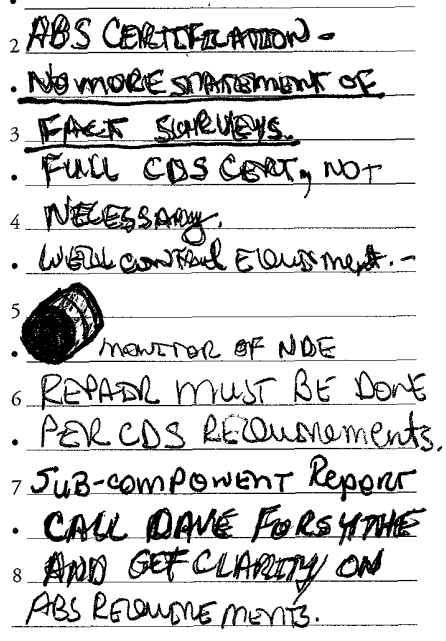 2 ABS CERTIFICATION -
• NO MORE STATEMENT OF
3 FACT SURVEYS.
• FULL CDS CERT, NOT
4 NECESSARY.
• WELL CONTROL EQUIPMENT. -
5
• MONITOR OF NDE
6 REPAIR MUST BE DONE
• PER CDS REQUIREMENTS,
7 SUB-COMPONENT REPORT
• CALL DAVE FORSYTHE
8 AND GET CLARITY ON
ABS REQUIREMENTS.